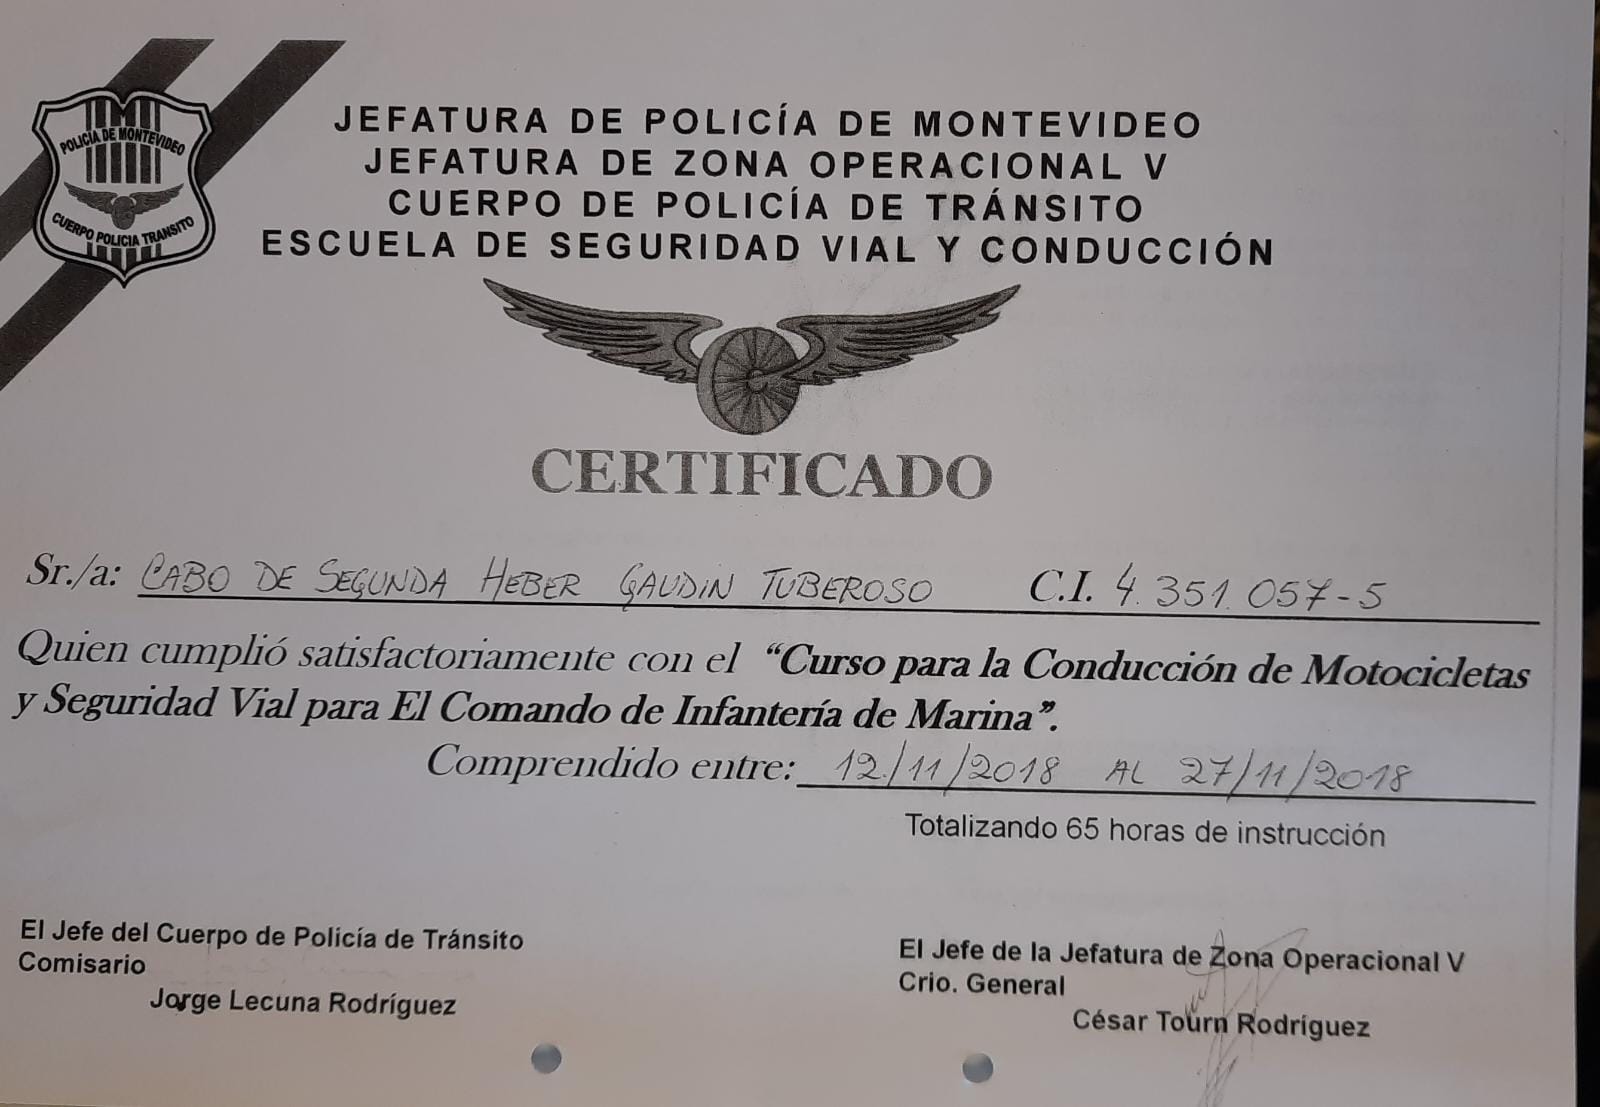 POLICÍA DE MONTEVIDEO
CUERPO POLICIA TRANSITO
JEFATURA DE POLICÍA DE MONTEVIDEO
JEFATURA DE ZONA OPERACIONAL V
CUERPO DE POLICÍA DE TRÁNSITO
ESCUELA DE SEGURIDAD VIAL Y CONDUCCIÓN
CERTIFICADO
Sr./a: CABO DE SEGUNDA HEBER GAUDIN TUBEROSO C.I. 4.351.057-5
Quien cumplió satisfactoriamente con el “Curso para la Conducción de Motocicletas
y Seguridad Vial para El Comando de Infantería de Marina”.
Comprendido entre: 12/11/2018 AL 27/11/2018
Totalizando 65 horas de instrucción
El Jefe del Cuerpo de Policía de Tránsito
Comisario
Jorge Lecuna Rodríguez
El Jefe de la Jefatura de Zona Operacional V
Crio. General
César Tourn Rodríguez